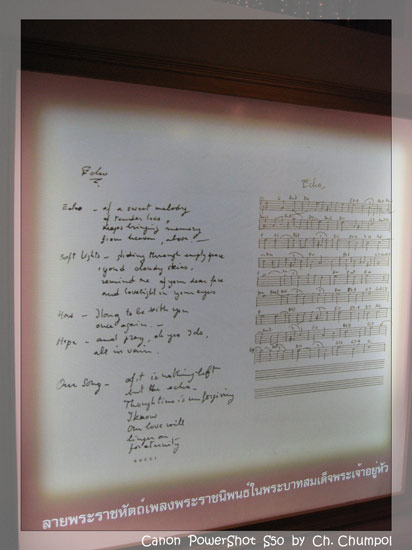 Echo
Echo
Echo - of a sweet melody
of tender love,
keeps bringing memory
from heaven, above -
Soft lights - sliding through empty space
beyond cloudy skies,
remind me of your dear face
and lovelight in your eyes
How - I long to be with you
once again -
Hope - and pray, oh yes I do,
all in vain.
Our Song - of it is nothing left
but the echo.
Though time is unforgiving
I know
our love will
linger on
for eternity
ลายพระราชหัตถ์เพลงพระราชนิพนธ์ในพระบาทสมเด็จพระเจ้าอยู่หัว
Canon PowerShot S50 by Ch. Chumpol